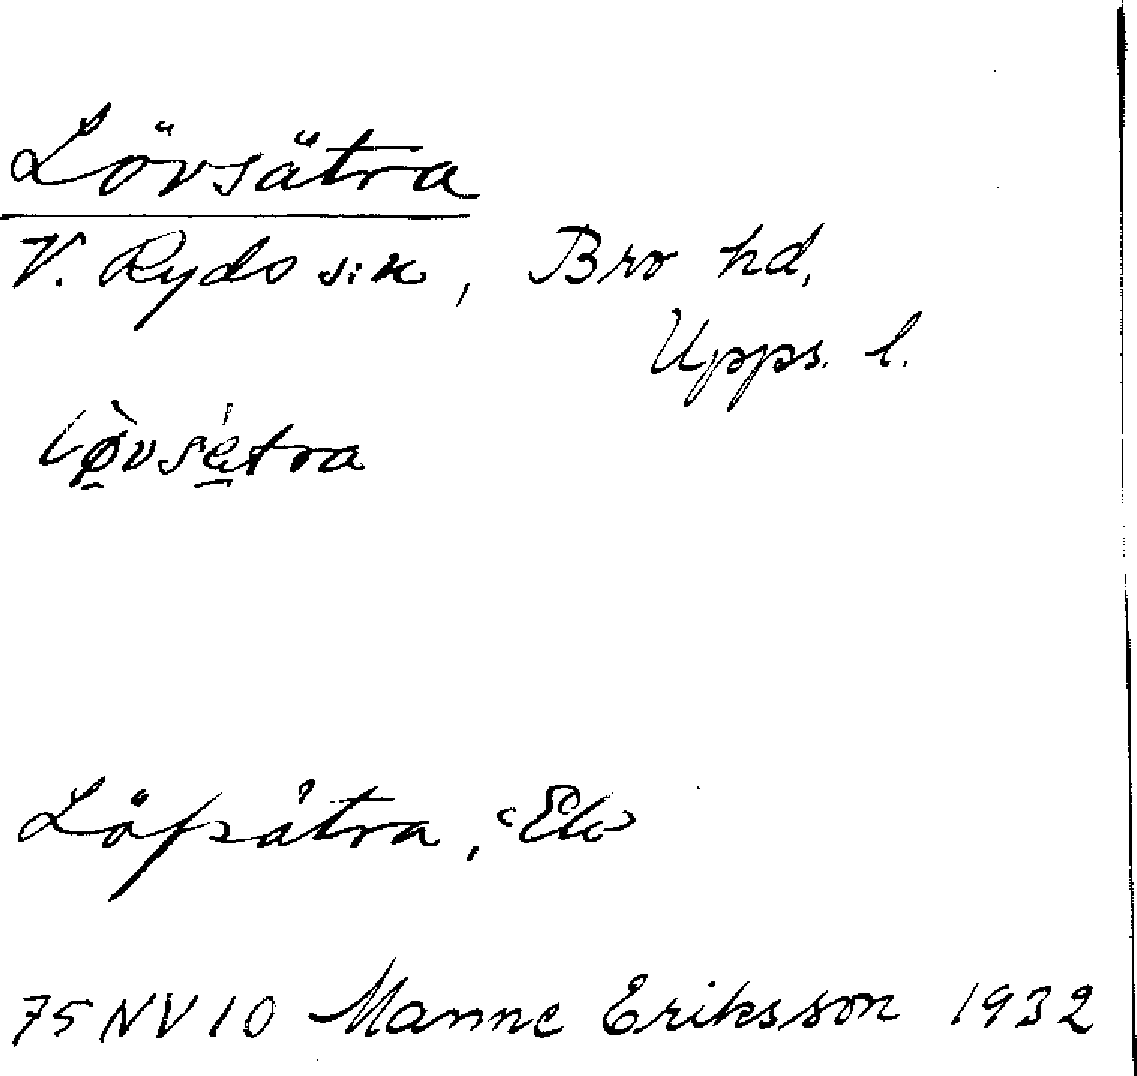 Lövsätra
V. Ryds sn, Bro hd,
Upps. l.
Löfsätra, Ek
75 NV 10 Manne Eriksson 1932